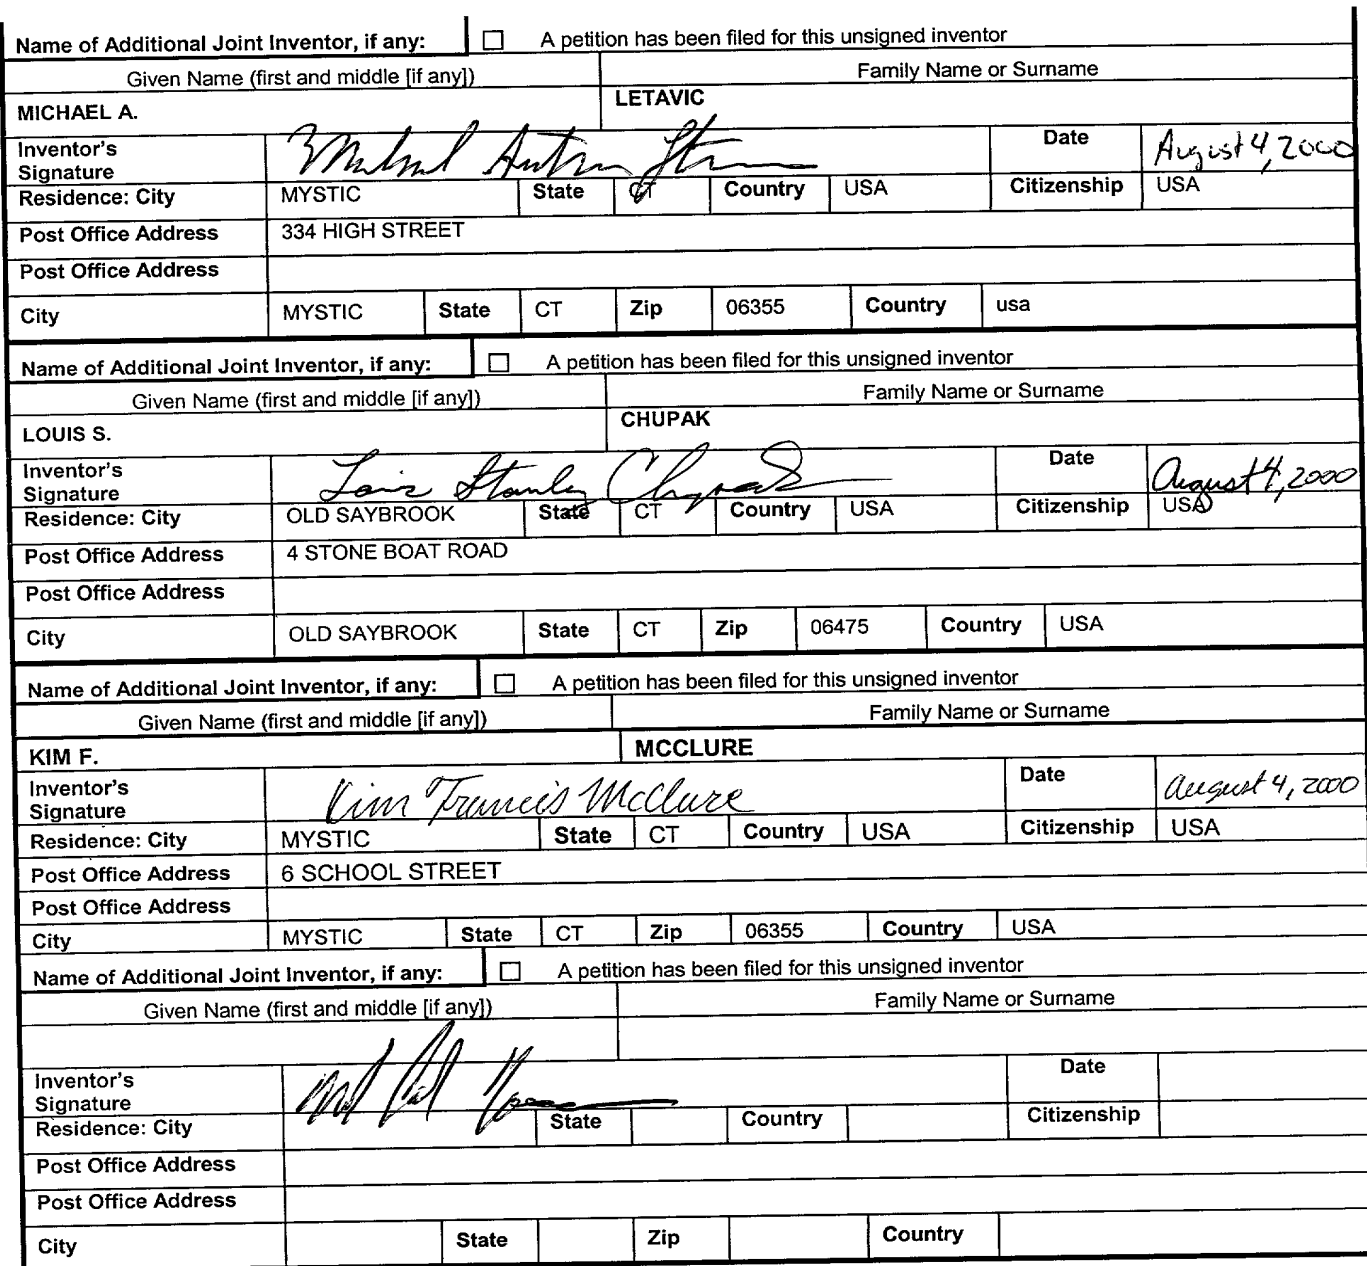 Name of Additional Joint Inventor, if any: ☐ A petition has been filed for this unsigned inventor
Given Name (first and middle [if any]) Family Name or Surname
MICHAEL A. LETAVIC
Inventor's Signature Date August 4, 2000
Residence: City MYSTIC State CT Country USA Citizenship USA
Post Office Address 334 HIGH STREET
Post Office Address
City MYSTIC State CT Zip 06355 Country usa
Name of Additional Joint Inventor, if any: ☐ A petition has been filed for this unsigned inventor
Given Name (first and middle [if any]) Family Name or Surname
LOUIS S. CHUPAK
Inventor's Signature Louis Stanley Chupak Date August 4, 2000
Residence: City OLD SAYBROOK State CT Country USA Citizenship USA
Post Office Address 4 STONE BOAT ROAD
Post Office Address
City OLD SAYBROOK State CT Zip 06475 Country USA
Name of Additional Joint Inventor, if any: ☐ A petition has been filed for this unsigned inventor
Given Name (first and middle [if any]) Family Name or Surname
KIM F. MCCLURE
Inventor's Signature Kim Francis McClure Date August 4, 2000
Residence: City MYSTIC State CT Country USA Citizenship USA
Post Office Address 6 SCHOOL STREET
Post Office Address
City MYSTIC State CT Zip 06355 Country USA
Name of Additional Joint Inventor, if any: ☐ A petition has been filed for this unsigned inventor
Given Name (first and middle [if any]) Family Name or Surname
Inventor's Signature Date
Residence: City State Country Citizenship
Post Office Address
Post Office Address
City State Zip Country